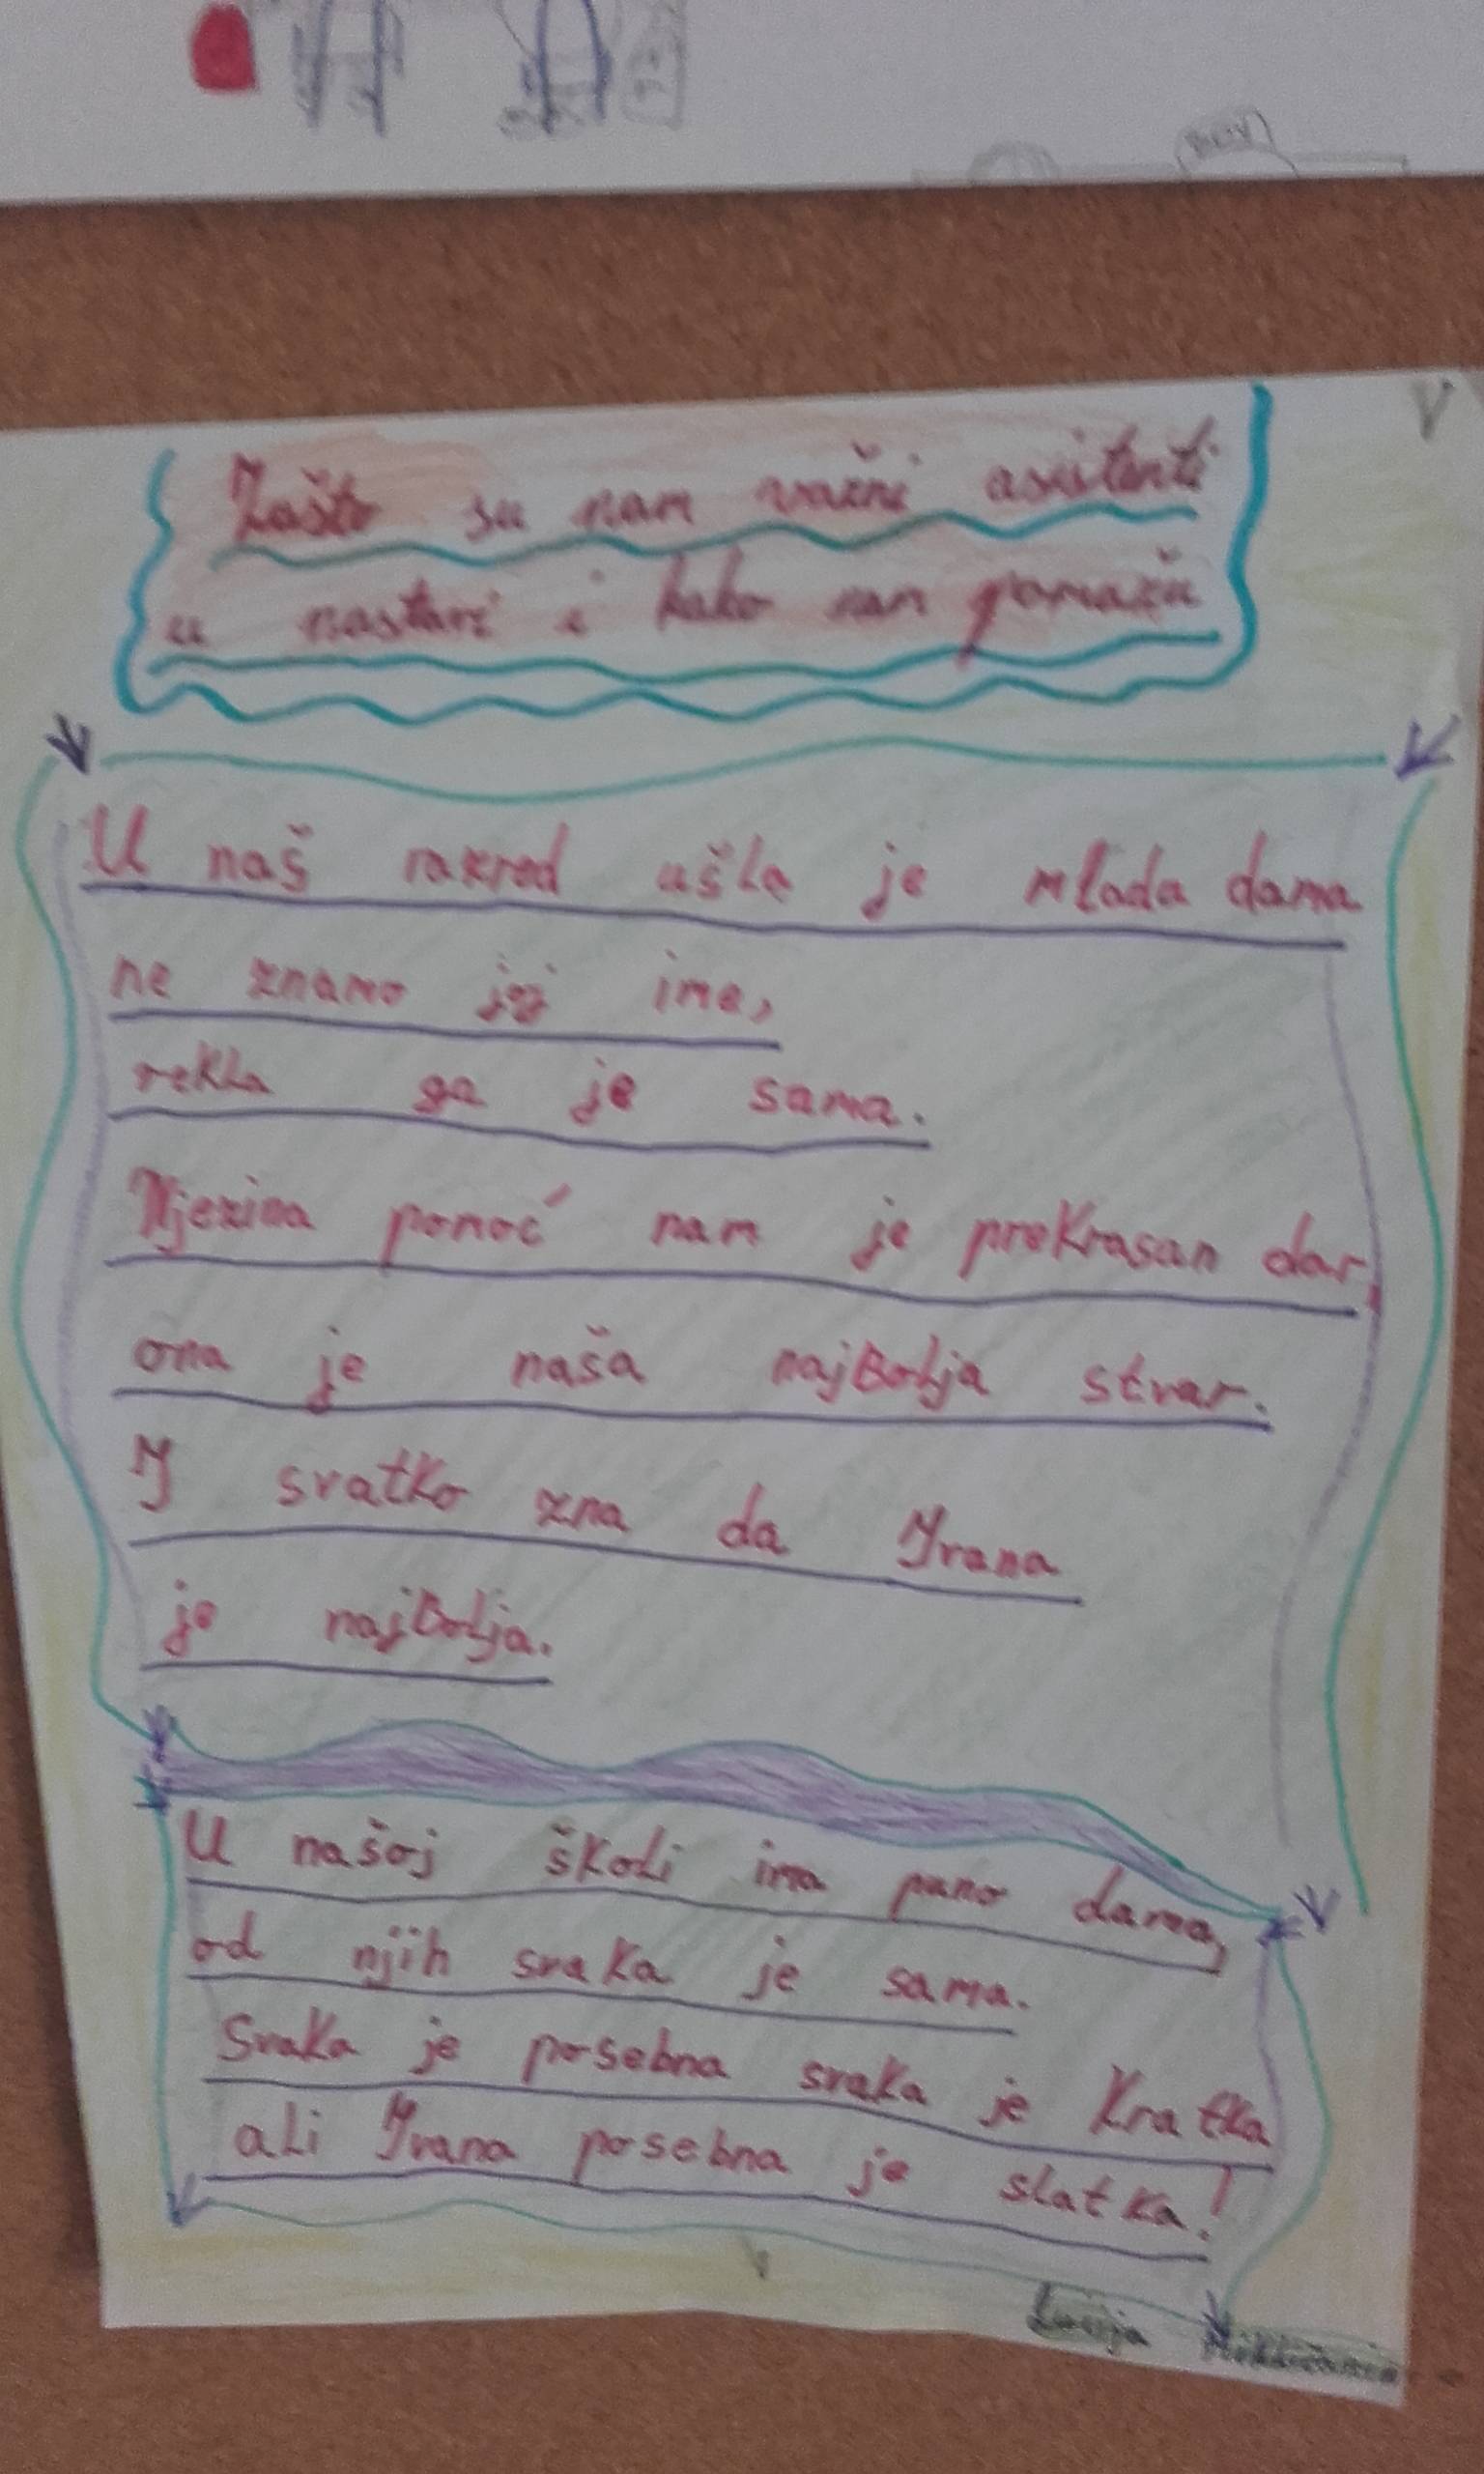 Zašto su nam važni asistenti
u nastavi i kako nam pomažu
U naš razred ušla je mlada dama
ne znamo joj ime,
rekla ga je sama.
Njezina pomoć nam je prekrasan dar,
ona je naša najbolja stvar.
I svatko zna da Ivana
je najbolja.
U našoj školi ima puno dama,
od njih svaka je sama.
Svaka je posebna svaka je kratka
ali Ivana posebna je slatka!
Lucija